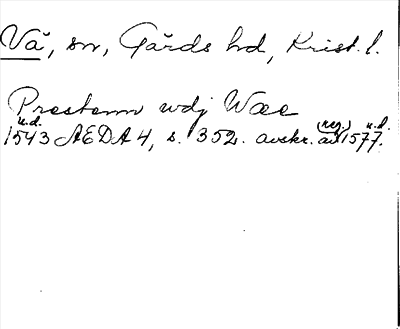 Vä, sn, Gärds hd, Krist. l.
Prestenn wdj Wæe
u.d. (reg.) u.d.
1543 AEDA 4, s. 352. avskr. av 1577.